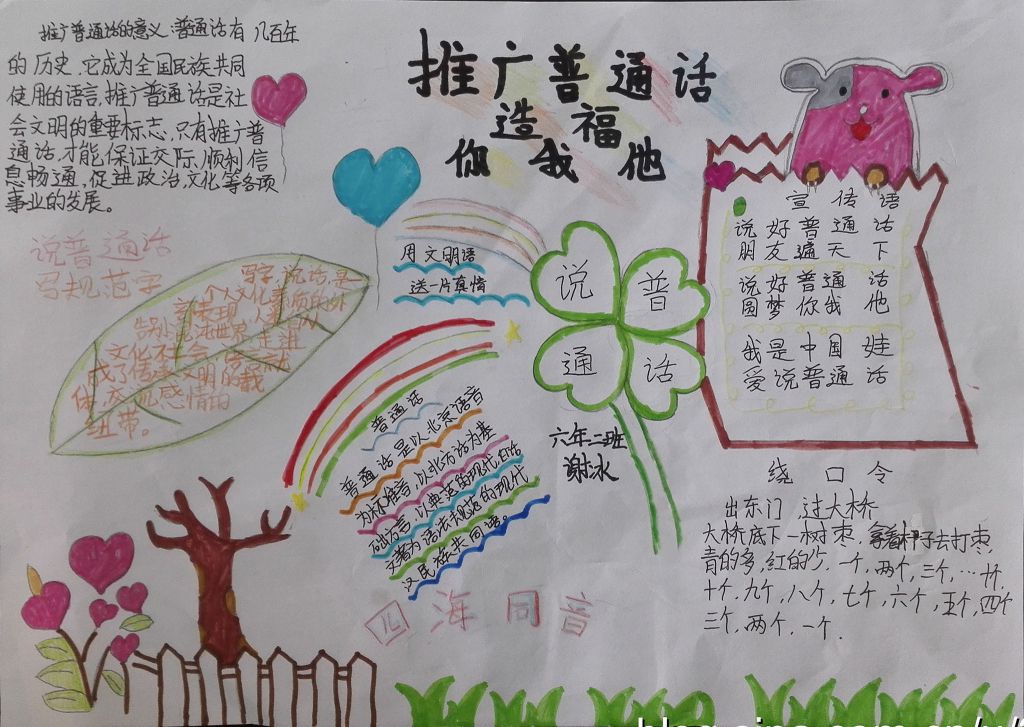 推广普通话的意义:普通话有几百年
的历史,它成为全国民族共同
使用的语言,推广普通话是社
会文明的重要标志,只有推广普
通话,才能保证交际,顺利信
息畅通,促进政治,文化等各项
事业的发展。
推广普通话
造福
你我他
说普通话
写规范字
写字,说话,是
个人文化素质的外
文化
纽带。
用文明语
送一片真情
说普
通话
六年二班
谢冰
普通话
普通话是以北京语音
为标准音,以北方话为基
础方言,以典范的现代白话
文著为语法规范的现代
汉民族共同语。
四海同音
宣传语
说好普通话
朋友遍天下
说好普通话
圆梦你我他
我是中国娃
爱说普通话
绕口令
出东门 过大桥
大桥底下一树枣,拿着杆子去打枣,
青的多,红的少,一个,两个,三个,…
十个,九个,八个,七个,六个,五个,四个
三个,两个,一个.